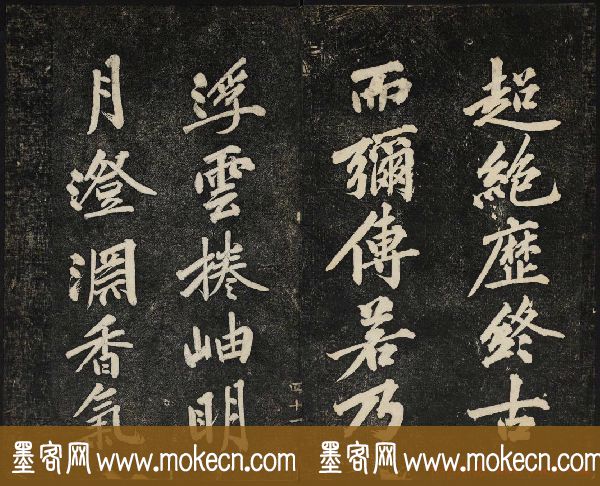 超絶歷終古
而彌傳若乃
浮雲捲岫明
月澄淵香氣
墨客网 www.mokecn.com 墨客网 www.mokecn.com